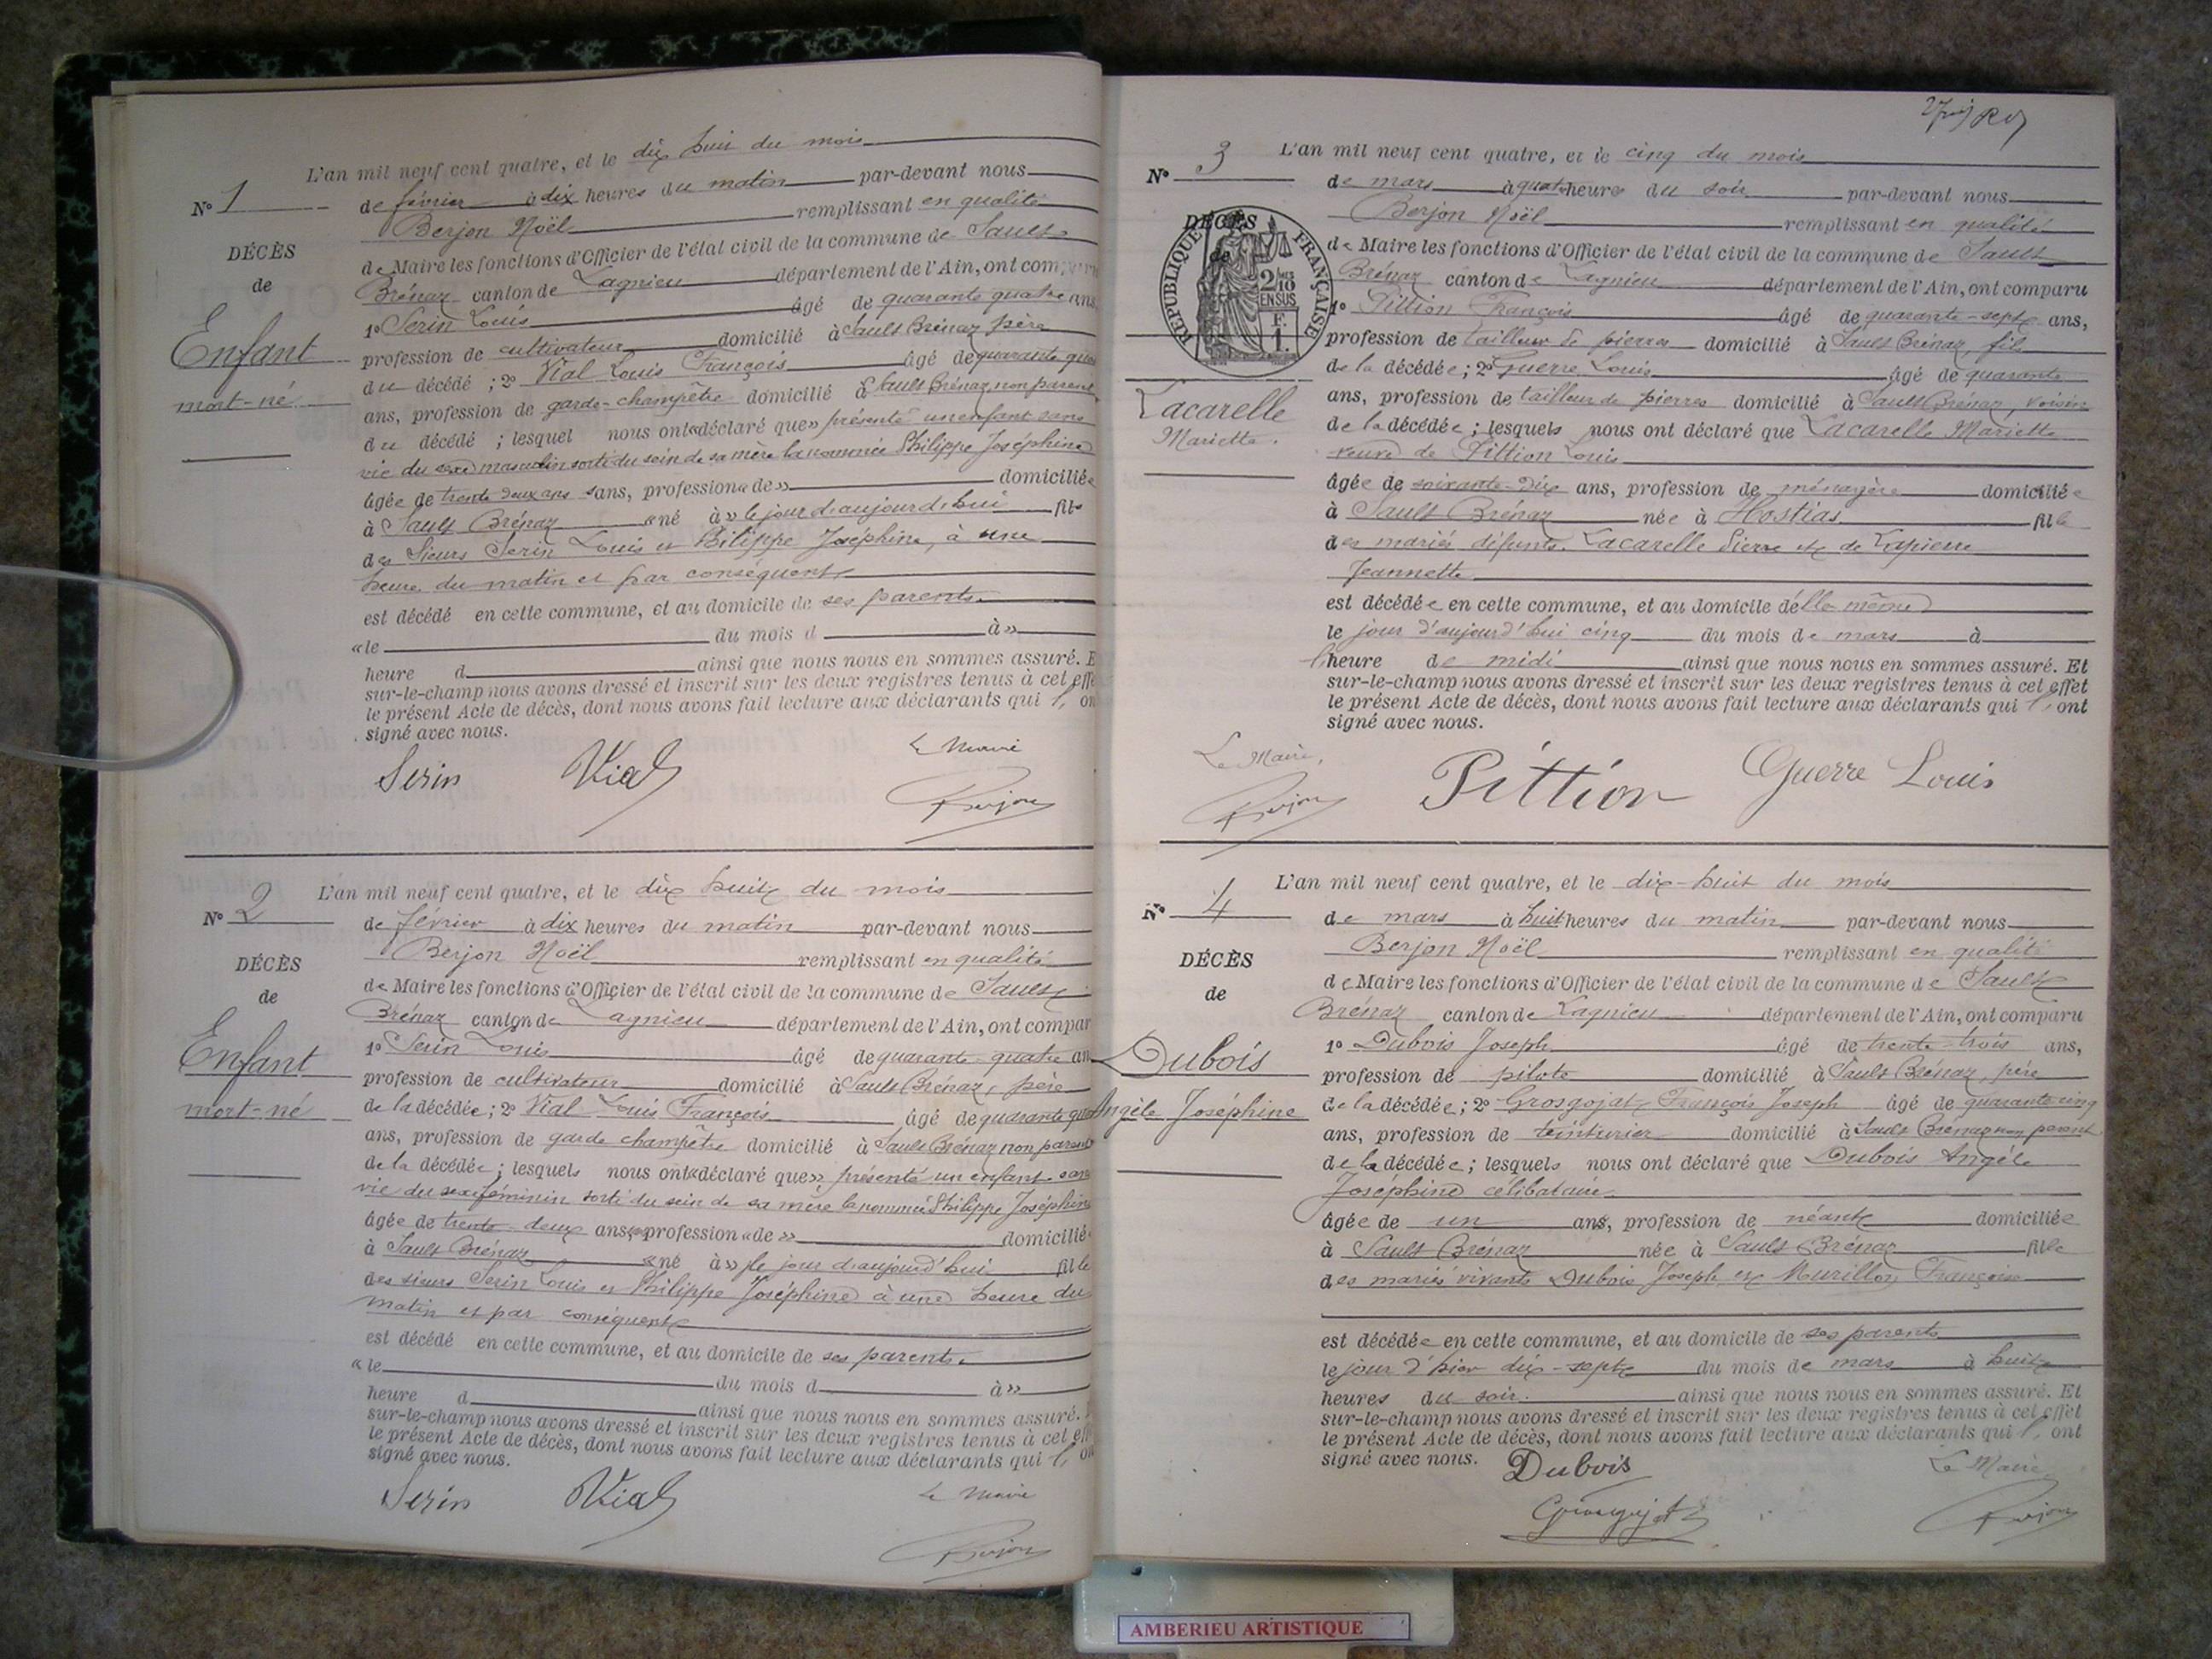 L'an mil neuf cent quatre, et le dix huit du mois
N° 1
de février à dix heures du matin par-devant nous
Berjon Noël remplissant en qualité
DÉCÈS
de Maire les fonctions d'Officier de l'état civil de la commune de Sault
de
Brénaz canton de Lagnieu département de l'Ain, ont comparu
1° Serin Louis âgé de quarante quatre ans,
Enfant
profession de cultivateur domicilié à Sault Brénaz père
du décédé ; 2° Vial Louis François âgé de quarante
mort-né
ans, profession de garde-champêtre domicilié à Sault Brénaz, non parent
du décédé ; lesquel nous ont «déclaré que» présenté un enfant sans
vie du sexe masculin sorti du sein de sa mère la nommée Philippe Joséphine
âgée de trente deux ans sans, profession «de» domiciliée
à Sault Brénaz «né à» le jour d'aujourd'hui fils
des Sieurs Serin Louis et Philippe Joséphine, à une
heure du matin et par conséquent
est décédé en cette commune, et au domicile de ses parents.
«le du mois d à»
heure d ainsi que nous nous en sommes assuré. E
sur-le-champ nous avons dressé et inscrit sur les deux registres tenus à cet effe
le présent Acte de décès, dont nous avons fait lecture aux déclarants qui l' on
signé avec nous.
Serin Vial Le Maire
Berjon
L'an mil neuf cent quatre, et le dix huit du mois
N° 2
de février à dix heures du matin par-devant nous
Berjon Noël remplissant en qualité
DÉCÈS
de Maire les fonctions d'Officier de l'état civil de la commune de Sault
de
Brénaz canton de Lagnieu département de l'Ain, ont compar
1° Serin Louis âgé de quarante-quatre an
Enfant
profession de cultivateur domicilié à Sault Brénaz, père
mort-né
de la décédée ; 2° Vial Louis François âgé de quarante
ans, profession de garde champêtre domicilié à Sault Brénaz non parent
de la décédée ; lesquels nous ont «déclaré que», présenté un enfant sans
vie du sexe féminin sorti du sein de sa mère la nommée Philippe Joséphine
âgée de trente-deux ans profession «de» domicilié
à Sault Brénaz «né à» le jour d'aujourd'hui fille
des sieurs Serin Louis et Philippe Joséphine à une heure du
matin et par conséquent
est décédé en cette commune, et au domicile de ses parents.
«le du mois d à»
heure d ainsi que nous nous en sommes assuré.
sur-le-champ nous avons dressé et inscrit sur les deux registres tenus à cet eff
le présent Acte de décès, dont nous avons fait lecture aux déclarants qui l' on
signé avec nous.
Serin Vial Le Maire
Berjon
L'an mil neuf cent quatre, et le cinq du mois
N° 3
de mars à quatre heures du soir par-devant nous
Berjon Noël remplissant en qualité
DÉCÈS
de
RÉPUBLIQUE FRANÇAISE
2/10 EN SUS
F. 1.
de Maire les fonctions d'Officier de l'état civil de la commune de Sault
Brénaz canton de Lagnieu département de l'Ain, ont comparu
1° Pittion François âgé de quarante-sept ans,
profession de tailleur de pierres domicilié à Sault Brénaz, fils
de la décédée ; 2° Guerre Louis âgé de quarante
Lacarelle
ans, profession de tailleur de pierres domicilié à Sault Brénaz, voisin
Mariette.
de la décédée ; lesquels nous ont déclaré que Lacarelle Mariette
veuve de Pittion Louis
âgée de soixante-dix ans, profession de ménagère domiciliée
à Sault Brénaz née à Hostias fille
des mariés défunts Lacarelle Pierre et de Lapierre
Jeannette
est décédée en cette commune, et au domicile d'elle même
le jour d'aujourd'hui cinq du mois de mars à
l'heure de midi ainsi que nous nous en sommes assuré. Et
sur-le-champ nous avons dressé et inscrit sur les deux registres tenus à cet effet
le présent Acte de décès, dont nous avons fait lecture aux déclarants qui l' ont
signé avec nous.
Le Maire, Pittion Guerre Louis
Berjon
L'an mil neuf cent quatre, et le dix-huit du mois
N° 4
de mars à huit heures du matin par-devant nous
Berjon Noël remplissant en qualité
DÉCÈS
de Maire les fonctions d'Officier de l'état civil de la commune de Sault
de
Brénaz canton de Lagnieu département de l'Ain, ont comparu
1° Dubois Joseph âgé de trente-trois ans,
Dubois
profession de pilote domicilié à Sault Brénaz, père
Angèle Joséphine
de la décédée ; 2° Grosgojat François Joseph âgé de quarante cinq
ans, profession de teinturier domicilié à Sault Brénaz non parent
de la décédée ; lesquels nous ont déclaré que Dubois Angèle
Joséphine célibataire
âgée de un ans, profession de néant domiciliée
à Sault Brénaz née à Sault Brénaz fille
des mariés vivants Dubois Joseph et Murillon Françoise
est décédée en cette commune, et au domicile de ses parents
le jour d'hier dix-sept du mois de mars à huit
heures du soir. ainsi que nous nous en sommes assuré. Et
sur-le-champ nous avons dressé et inscrit sur les deux registres tenus à cet effet
le présent Acte de décès, dont nous avons fait lecture aux déclarants qui l' ont
signé avec nous.
Dubois Le Maire
Grosgojat Berjon
AMBERIEU ARTISTIQUE